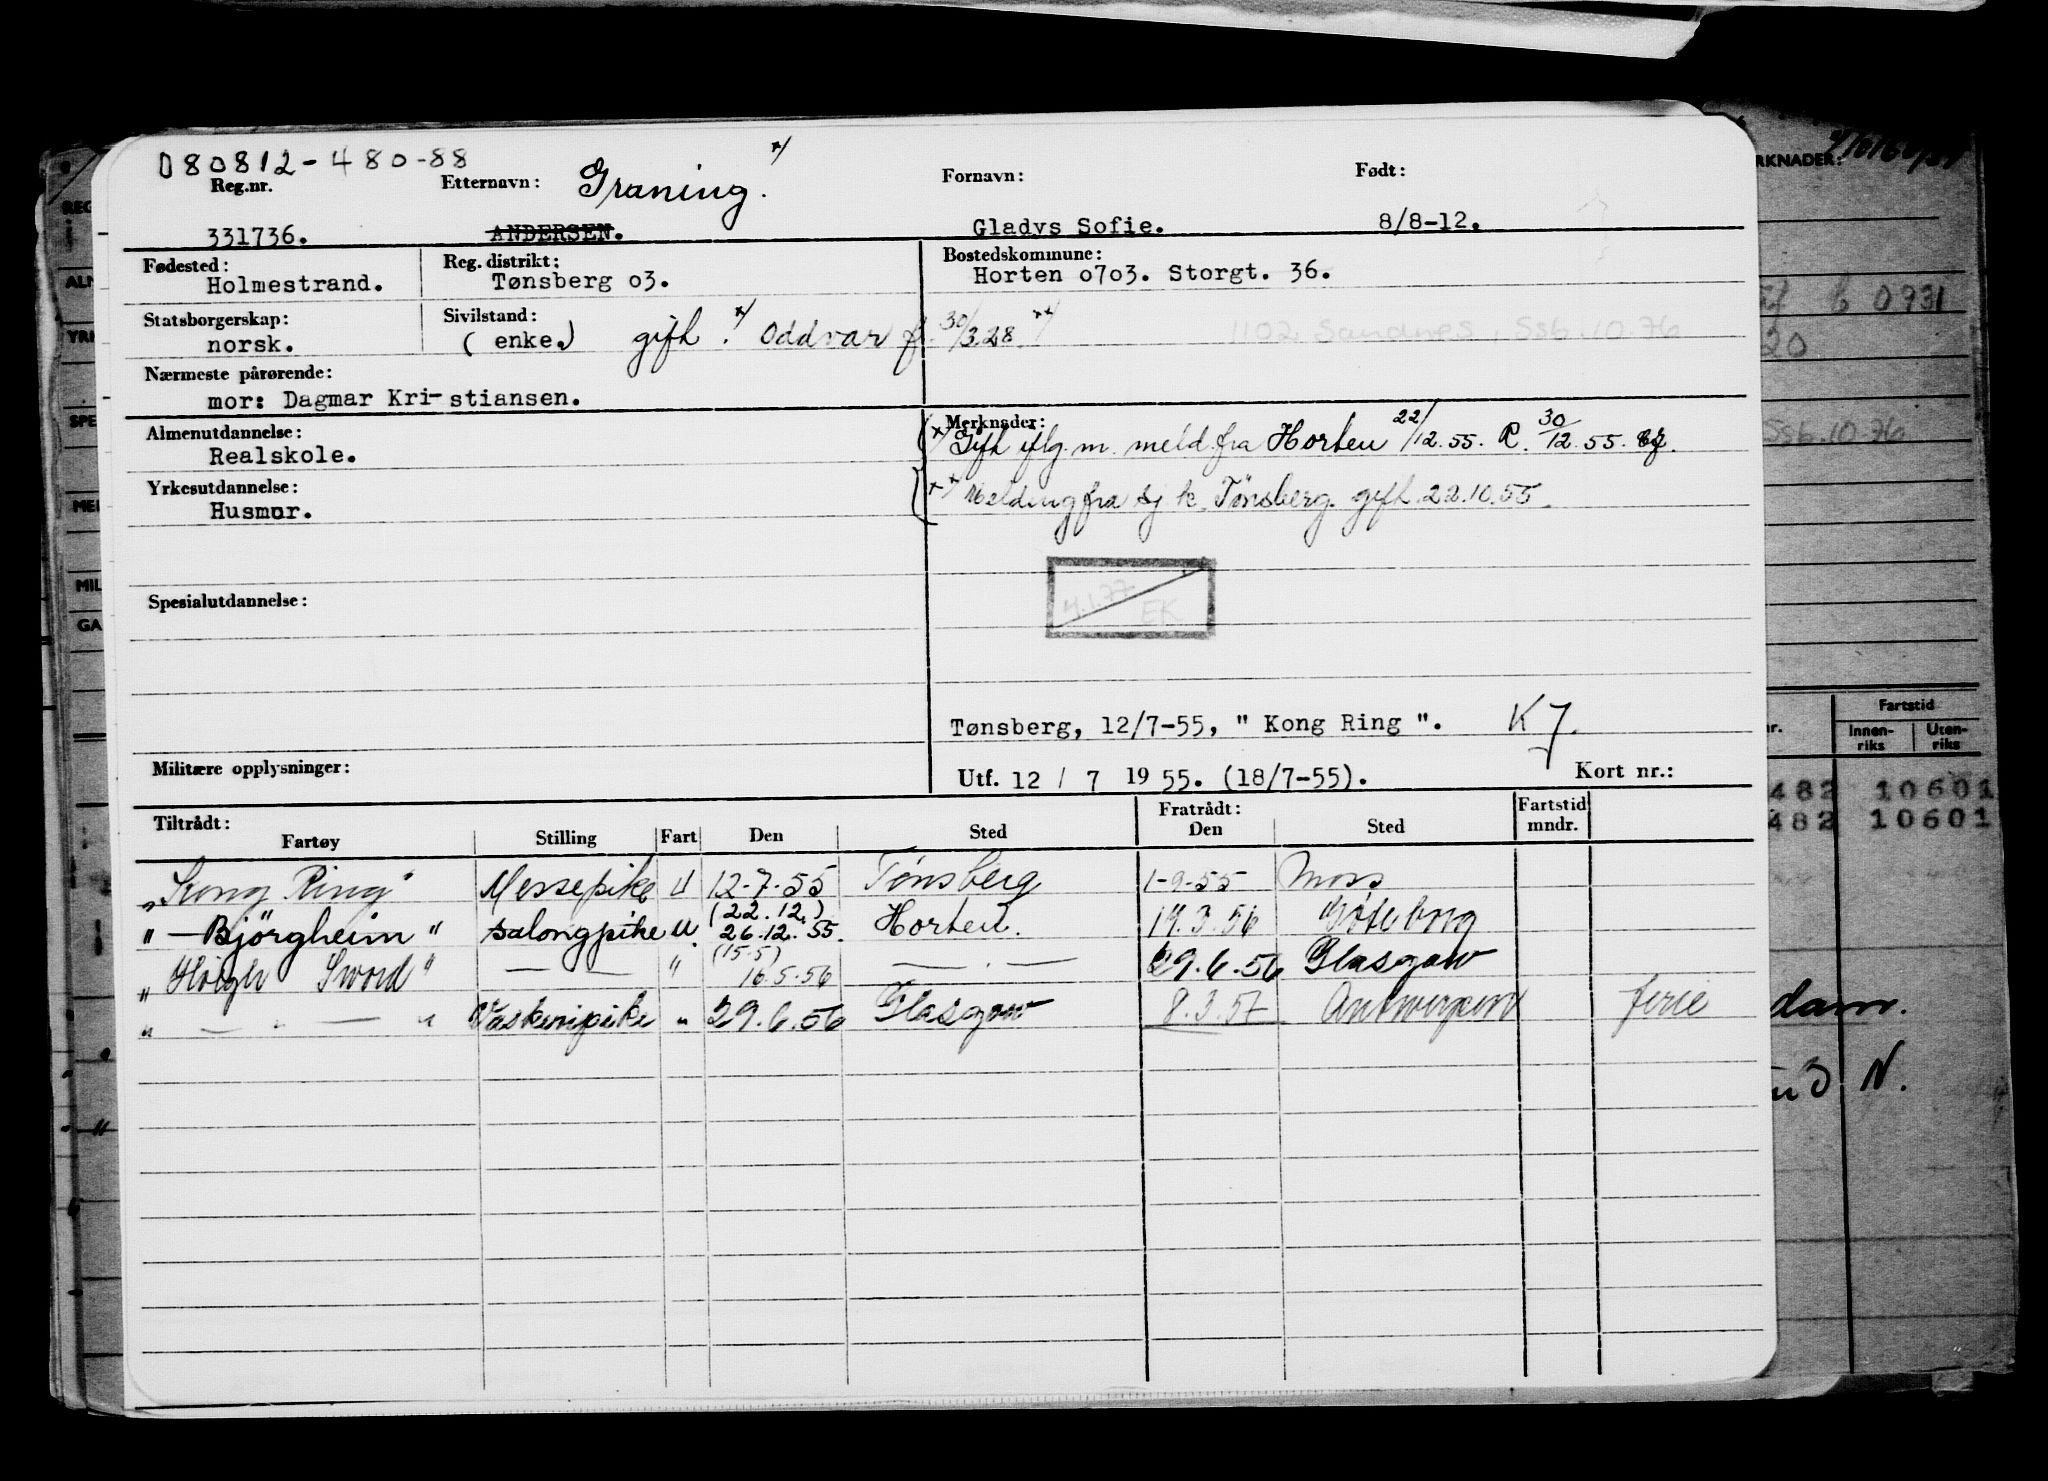 080812-480-88
Reg.nr. Etternavn: Graning. x/ Fornavn: Født:
331736. ANDERSEN. Gladys Sofie. 8/8-12.
Fødested: Reg. distrikt: Bostedskommune:
Holmestrand. Tønsberg 03. Horten 0703. Storgt. 36.
Statsborgerskap: Sivilstand:
norsk. (enke.) gift. x/ Oddvar f. 30/3.28. xx/ 1102 Sandnes, Ssb.10.76
Nærmeste pårørende:
mor: Dagmar Kri-stiansen.
Almenutdannelse: Merknader:
Realskole. x/ Gift iflg. m. meld. fra Horten 22/12.55. R. 30/12.55.
Yrkesutdannelse:
Husmor. xx/ Melding fra sj k. Tønsberg. gift 22.10.55.
4.1.77
EK
Spesialutdannelse:
Tønsberg, 12/7-55, " Kong Ring ". K 7.
Militære opplysninger: Utf. 12 / 7 19 55. (18/7-55). Kort nr.:
Tiltrådt: Fratrådt: Fartstid
Fartøy Stilling Fart Den Sted Den Sted mndr.
"Kong Ring" Messepike U 12-7-55 Tønsberg 1-9-55 Moss
(22.12.)
"—Bjørgheim" salongpike U 26.12.55. Horten. 19.3.56 Gøteborg
(15.5)
"Høegh Sword" — — " 16.5.56 — . — 29.6.56 Glasgow
" — " — " Vaskeripike " 29.6.56 Glasgow 8.3.57 Antwerpen ferie
RKNADER:
0931
20
Ssb.10.76
Fartstid
Innen-riks Uten-riks
482 10601
482 10601
dam.
N.